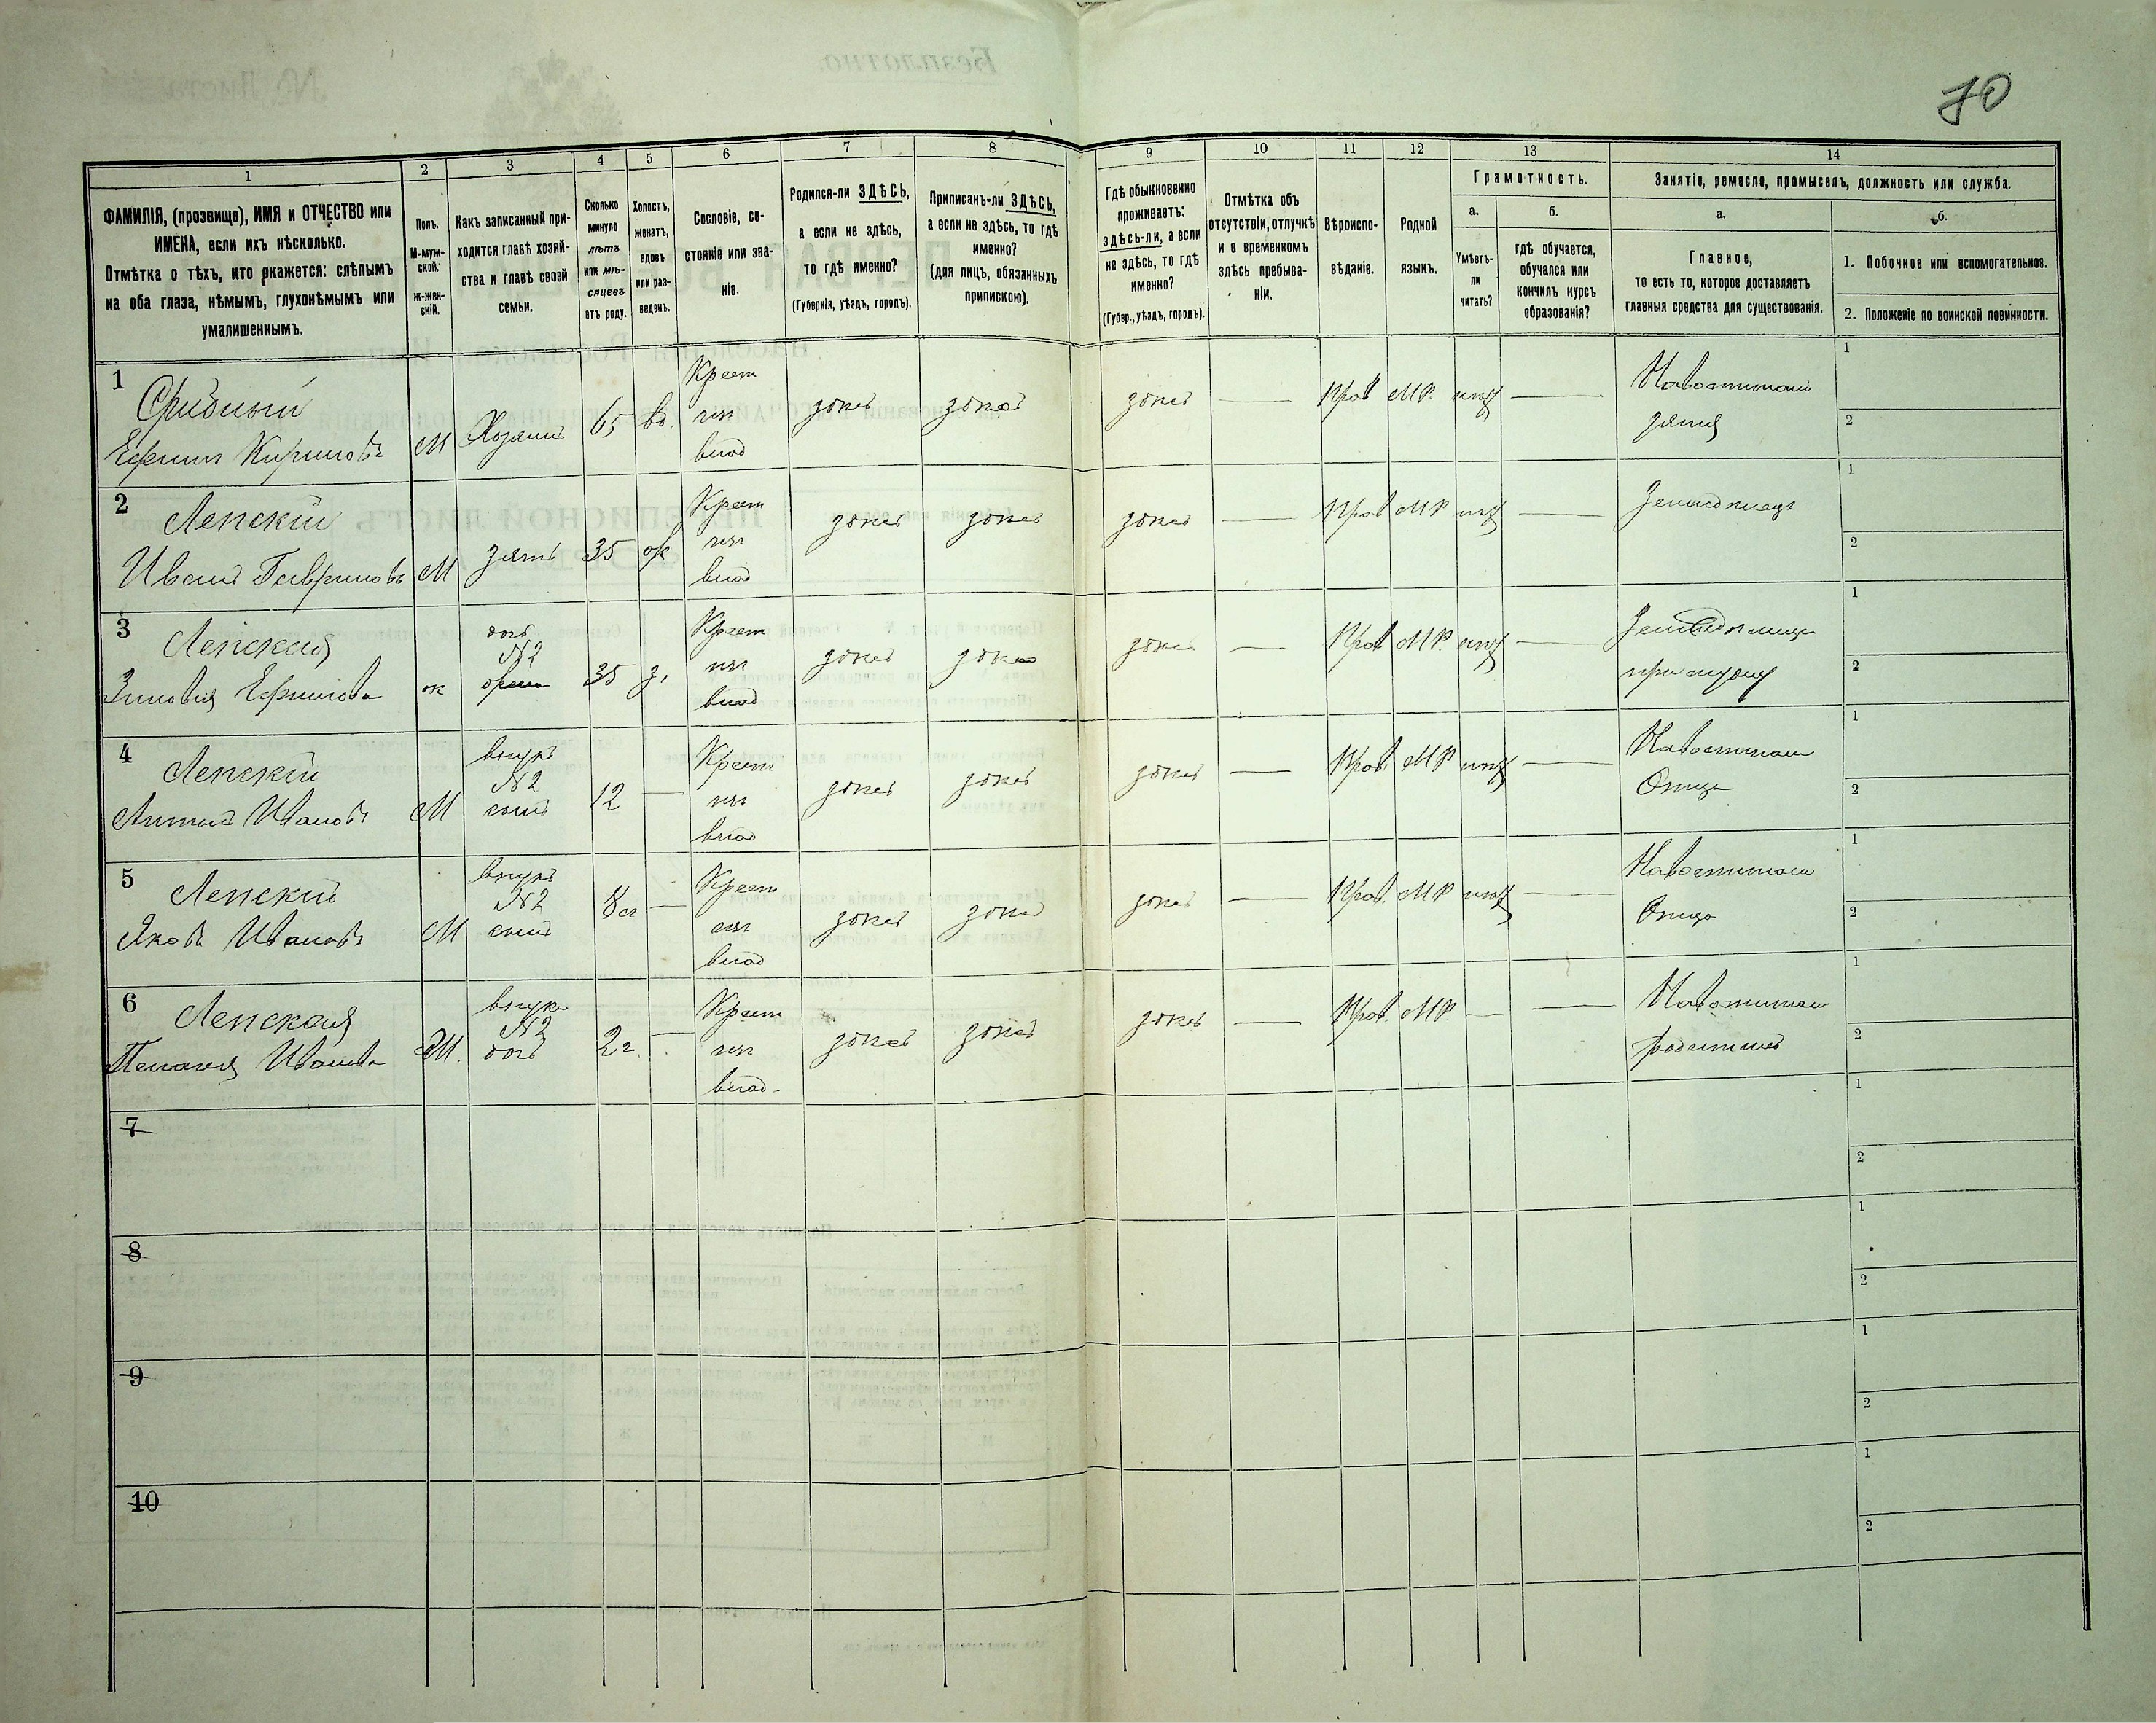 70
1 2 3 4 5 6 7 8 9 10 11 12 13 14
ФАМИЛІЯ, (прозвище), ИМЯ и ОТЧЕСТВО или
ИМЕНА, если ихъ нѣсколько.
Отмѣтка о тѣхъ, кто окажется: слѣпымъ
на оба глаза, нѣмымъ, глухонѣмымъ или
умалишеннымъ.
Полъ.
М-муж-
ской.
Ж-жен-
скій.
Какъ записанный при-
ходится главѣ хозяй-
ства и главѣ своей
семьи.
Сколько
минуло
лѣтъ
или мѣ-
сяцевъ
отъ роду.
Холостъ,
женатъ,
вдовъ
или раз-
веденъ.
Сословіе, со-
стояніе или зва-
ніе.
Родился-ли ЗДѢСЬ,
а если не здѣсь,
то гдѣ именно?
(Губернія, уѣздъ, городъ).
Приписанъ-ли ЗДѢСЬ,
а если не здѣсь, то гдѣ
именно?
(для лицъ, обязанныхъ
припискою).
Гдѣ обыкновенно
проживаетъ:
здѣсь-ли, а если
не здѣсь, то гдѣ
именно?
(Губер., уѣздъ, городъ).
Отмѣтка объ
отсутствіи, отлучкѣ
и о временномъ
здѣсь пребыва-
ніи.
Вѣроиспо-
вѣданіе.
Родной
языкъ.
Грамотность.
а.
Умѣетъ-
ли
читать?
б.
гдѣ обучается,
обучался или
кончилъ курсъ
образованія?
Занятіе, ремесло, промыселъ, должность или служба.
а.
Главное,
то есть то, которое доставляетъ
главныя средства для существованія.
б.
1. Побочное или вспомогательное.
2. Положеніе по воинской повинности.
1
Ефимъ Кириловъ
М
Хозяинъ
65
вд.
Крест
изъ
влад
здѣсь
здѣсь
здѣсь
Прав
МР.
нѣтъ
зятя
1
2
2
Ленскій
Иванъ Гавриловъ
М
зять
35
ж
Крест
изъ
влад
здѣсь
здѣсь
здѣсь
Прав
МР
нѣтъ
Земледѣлецъ
1
2
3
Ленская
Зиновія Ефимова
ж
дочь
№2
жена
35
з.
Крест
изъ
влад
здѣсь
здѣсь
здѣсь
Прав
МР.
нѣтъ
при мужѣ
1
2
4
Ленскій
Антонъ Ивановъ
М
внукъ
№2
сынъ
12
Крест
изъ
влад
здѣсь
здѣсь
здѣсь
Прав.
МР
нѣтъ
Отца
1
2
5
Ленскій
Яковъ Ивановъ
М
внукъ
№2
сынъ
8
Крест
изъ
влад
здѣсь
здѣсь
здѣсь
Прав.
МР
нѣтъ
Отца
1
2
6
Ленская
Пелагея Иванова
внука
№2
дочь
2г.
Крест
изъ
влад.
здѣсь
здѣсь
здѣсь
Прав.
МР.
родителей
1
2
7
1
2
8
1
2
9
1
2
10
1
2